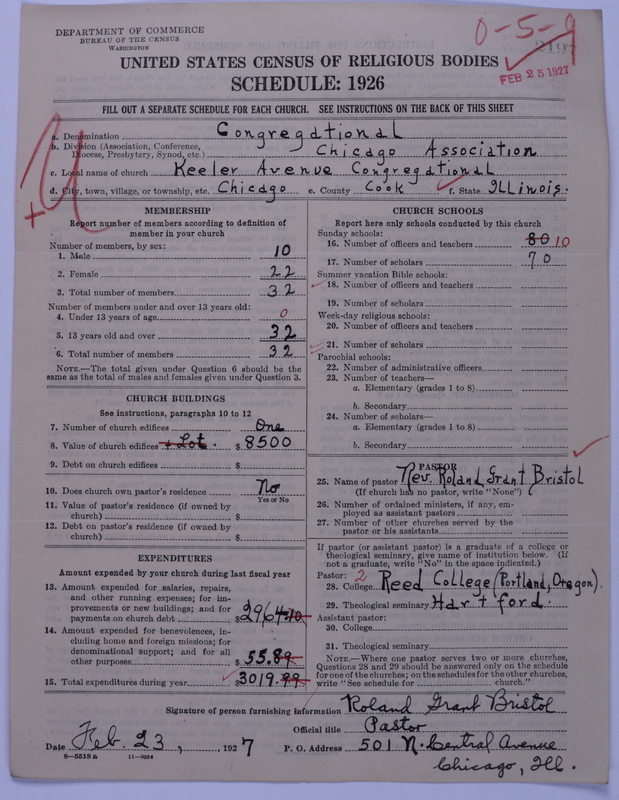 DEPARTMENT OF COMMERCE
BUREAU OF THE CENSUS
WASHINGTON
0-5-9
UNITED STATES CENSUS OF RELIGIOUS BODIES
FEB 25 1927
SCHEDULE: 1926
FILL OUT A SEPARATE SCHEDULE FOR EACH CHURCH. SEE INSTRUCTIONS ON THE BACK OF THIS SHEET
a. Denomination Congregational
b. Division (Association, Conference, Diocese, Presbytery, Synod, etc.) Chicago Association
c. Local name of church Keeler Avenue Congregational
d. City, town, village, or township, etc. Chicago e. County Cook f. State Illinois.
MEMBERSHIP
Report number of members according to definition of
member in your church
Number of members, by sex:
1. Male 10
2. Female 22
3. Total number of members 32
Number of members under and over 13 years old:
4. Under 13 years of age 0
5. 13 years old and over 32
6. Total number of members 32
NOTE.—The total given under Question 6 should be
same as the total of males and females given under Question 3.
CHURCH BUILDINGS
See instructions, paragraphs 10 to 12
7. Number of church edifices One
8. Value of church edifices + Lot. $8500
9. Debt on church edifices $
10. Does church own pastor's residence No
Yes or No
11. Value of pastor's residence (if owned by
church) $
12. Debt on pastor's residence (if owned by
church) $
EXPENDITURES
Amount expended by your church during last fiscal year
13. Amount expended for salaries, repairs,
and other running expenses; for im-
provements or new buildings; and for
payments on church debt $2964.10
14. Amount expended for benevolences, in-
cluding home and foreign missions; for
denominational support; and for all
other purposes $55.89
15. Total expenditures during year $3019.99
CHURCH SCHOOLS
Report here only schools conducted by this church
Sunday schools:
16. Number of officers and teachers 80 10
17. Number of scholars 70
Summer vacation Bible schools:
18. Number of officers and teachers
19. Number of scholars
Week-day religious schools:
20. Number of officers and teachers
21. Number of scholars
Parochial schools:
22. Number of administrative officers
23. Number of teachers—
a. Elementary (grades 1 to 8)
b. Secondary
24. Number of scholars—
a. Elementary (grades 1 to 8)
b. Secondary
PASTOR
25. Name of pastor Rev. Roland Grant Bristol
(If church has no pastor, write "None")
26. Number of ordained ministers, if any, em-
ployed as assistant pastors
27. Number of other churches served by the
pastor or his assistants
If pastor (or assistant pastor) is a graduate of a college or
theological seminary, give name of institution below. (If
not a graduate, write "No" in the space indicated.)
Pastor: 2
28. College Reed College (Portland, Oregon).
29. Theological seminary Hartford.
Assistant pastor:
30. College
31. Theological seminary
NOTE.—Where one pastor serves two or more churches,
Questions 28 and 29 should be answered only on the schedule
for one of the churches; on the schedules for the other churches,
write "See schedule for church."
Signature of person furnishing information Roland Grant Bristol
Official title Pastor
Date Feb. 23, 1927 P. O. Address 501 N. Central Avenue
8—5518a 11—9054
Chicago, Ill.